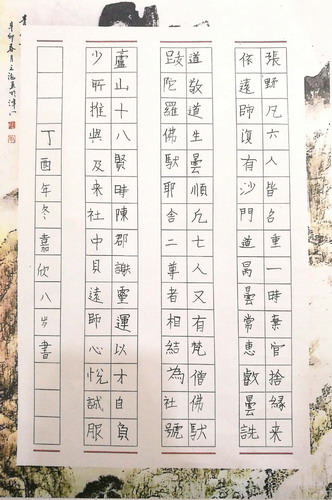 張野凡六人皆名重一時棄官捨緣来
依遠師復有沙門道昺曇常惠叡曇詵
道敬道生曇順凡七人又有梵僧佛馱
跋陀羅佛馱耶舍二尊者相結為社號
廬山十八賢時陳郡謝靈運以才自負
少所推與及来社中見遠師心悅誠服
丁酉年冬嘉欣八岁書
辛卯春月